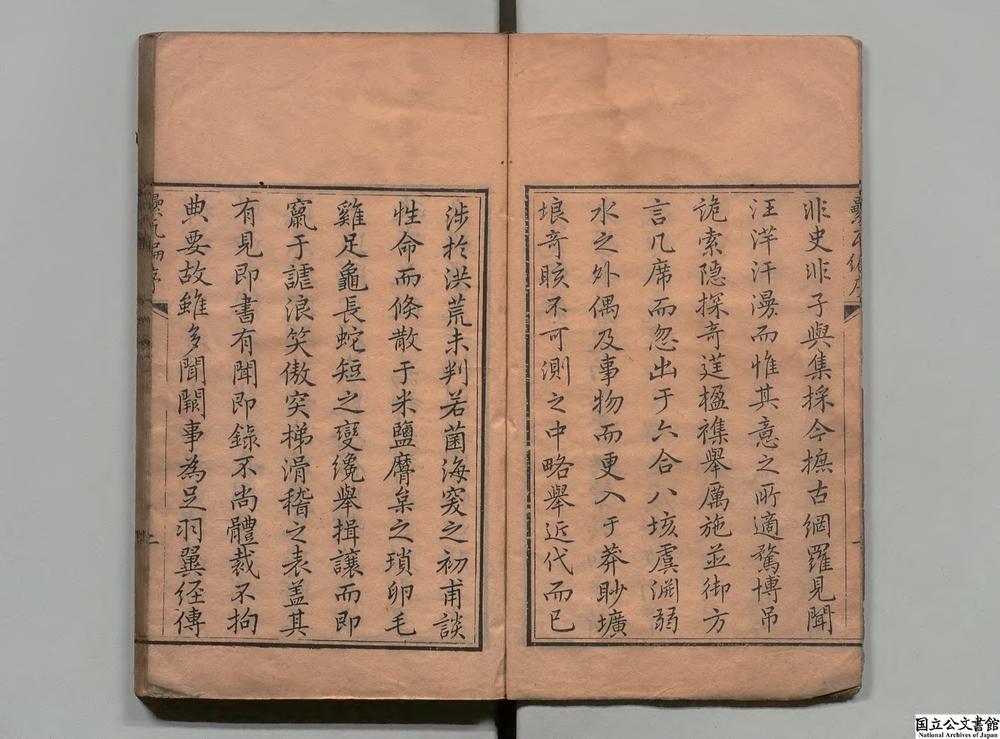 非史非子與集採今摭古網羅見聞
汪洋汗漫而惟其意之所適騖博吊
詭索隱探奇莛楹襍舉厲施並御方
言几席而忽出于六合八垓虞淵弱
水之外偶及事物而更入于莽眇壙
埌奇眩不可測之中略舉近代而已
涉於洪荒未判若菌海窔之初甫談
性命而倏散于米鹽麿枲之瑣卵毛
雞足龜長蛇短之變纔舉揖讓而即
竄于謔浪笑傲突梯滑稽之表盖其
有見即書有聞即錄不尚體裁不拘
典要故雖多聞闕事為足羽翼経傳
国立公文書館
National Archives of Japan